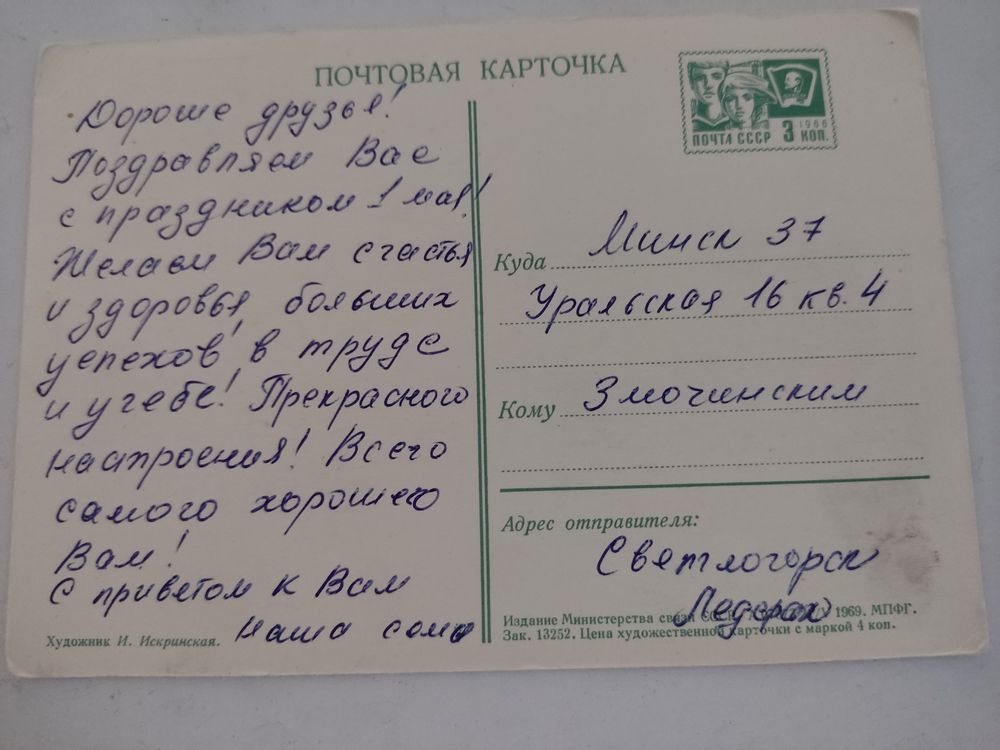 ПОЧТОВАЯ КАРТОЧКА
Дорогие друзья!
Поздравляем Вас
с праздником 1 мая!
Желаем Вам счастья
и здоровья, больших
успехов в труде
и учебе! Прекрасного
настроения! Всего
самого хорошего
Вам!
С приветом к Вам
Наша семья
Художник И. Искринская.
1966
ПОЧТА СССР 3 КОП.
Куда Минск 37
Уральская 16 кв. 4
Кому Змочинским
Адрес отправителя:
Светлогорск
Издание Министерства связи СССР 1969. МПФГ.
Зак. 13252. Цена художественной карточки с маркой 4 коп.